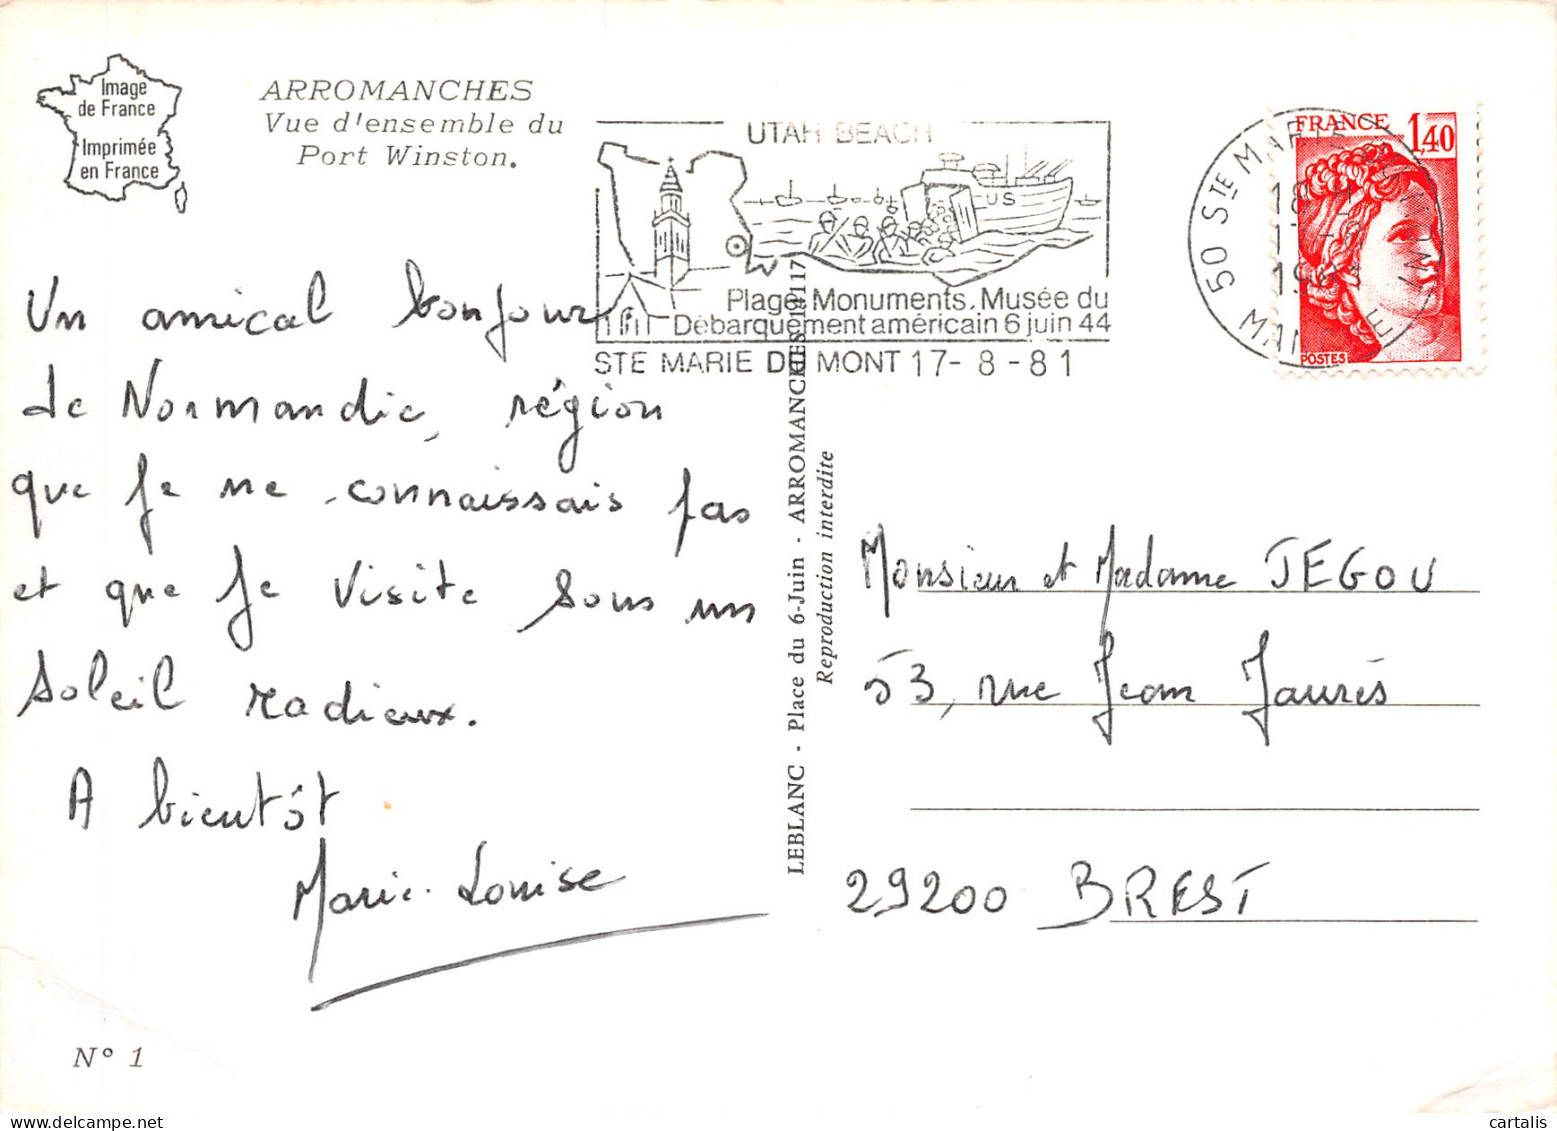 Image
de France
Imprimée
en France
ARROMANCHES
Vue d'ensemble du
Port Winston.
UTAH BEACH
US
Plage. Monuments. Musée du
Débarquement américain 6 juin 44
STE MARIE DU MONT 17-8-81
50 STE MARIE DU MONT
MANCHE
18 H
17-8
1981
FRANCE 1,40
POSTES
Un amical bonjour
de Normandie, région
que je ne connaissais pas
et que je visite sous un
soleil radieux.
A bientôt
Marie-Louise
LEBLANC - Place du 6-Juin - ARROMANCHES 14117
Reproduction interdite
Monsieur et Madame JEGOU
53, rue Jean Jaurès
29200 BREST
N° 1
cartalis